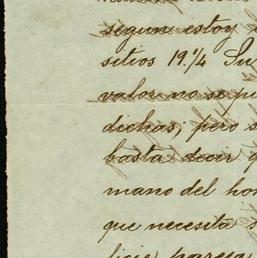 segun estoy
sitios 19.¼ Su
valor no se pu
dichas; pero s
basta decir q
mano del hon
que necesita s
ficie parezca